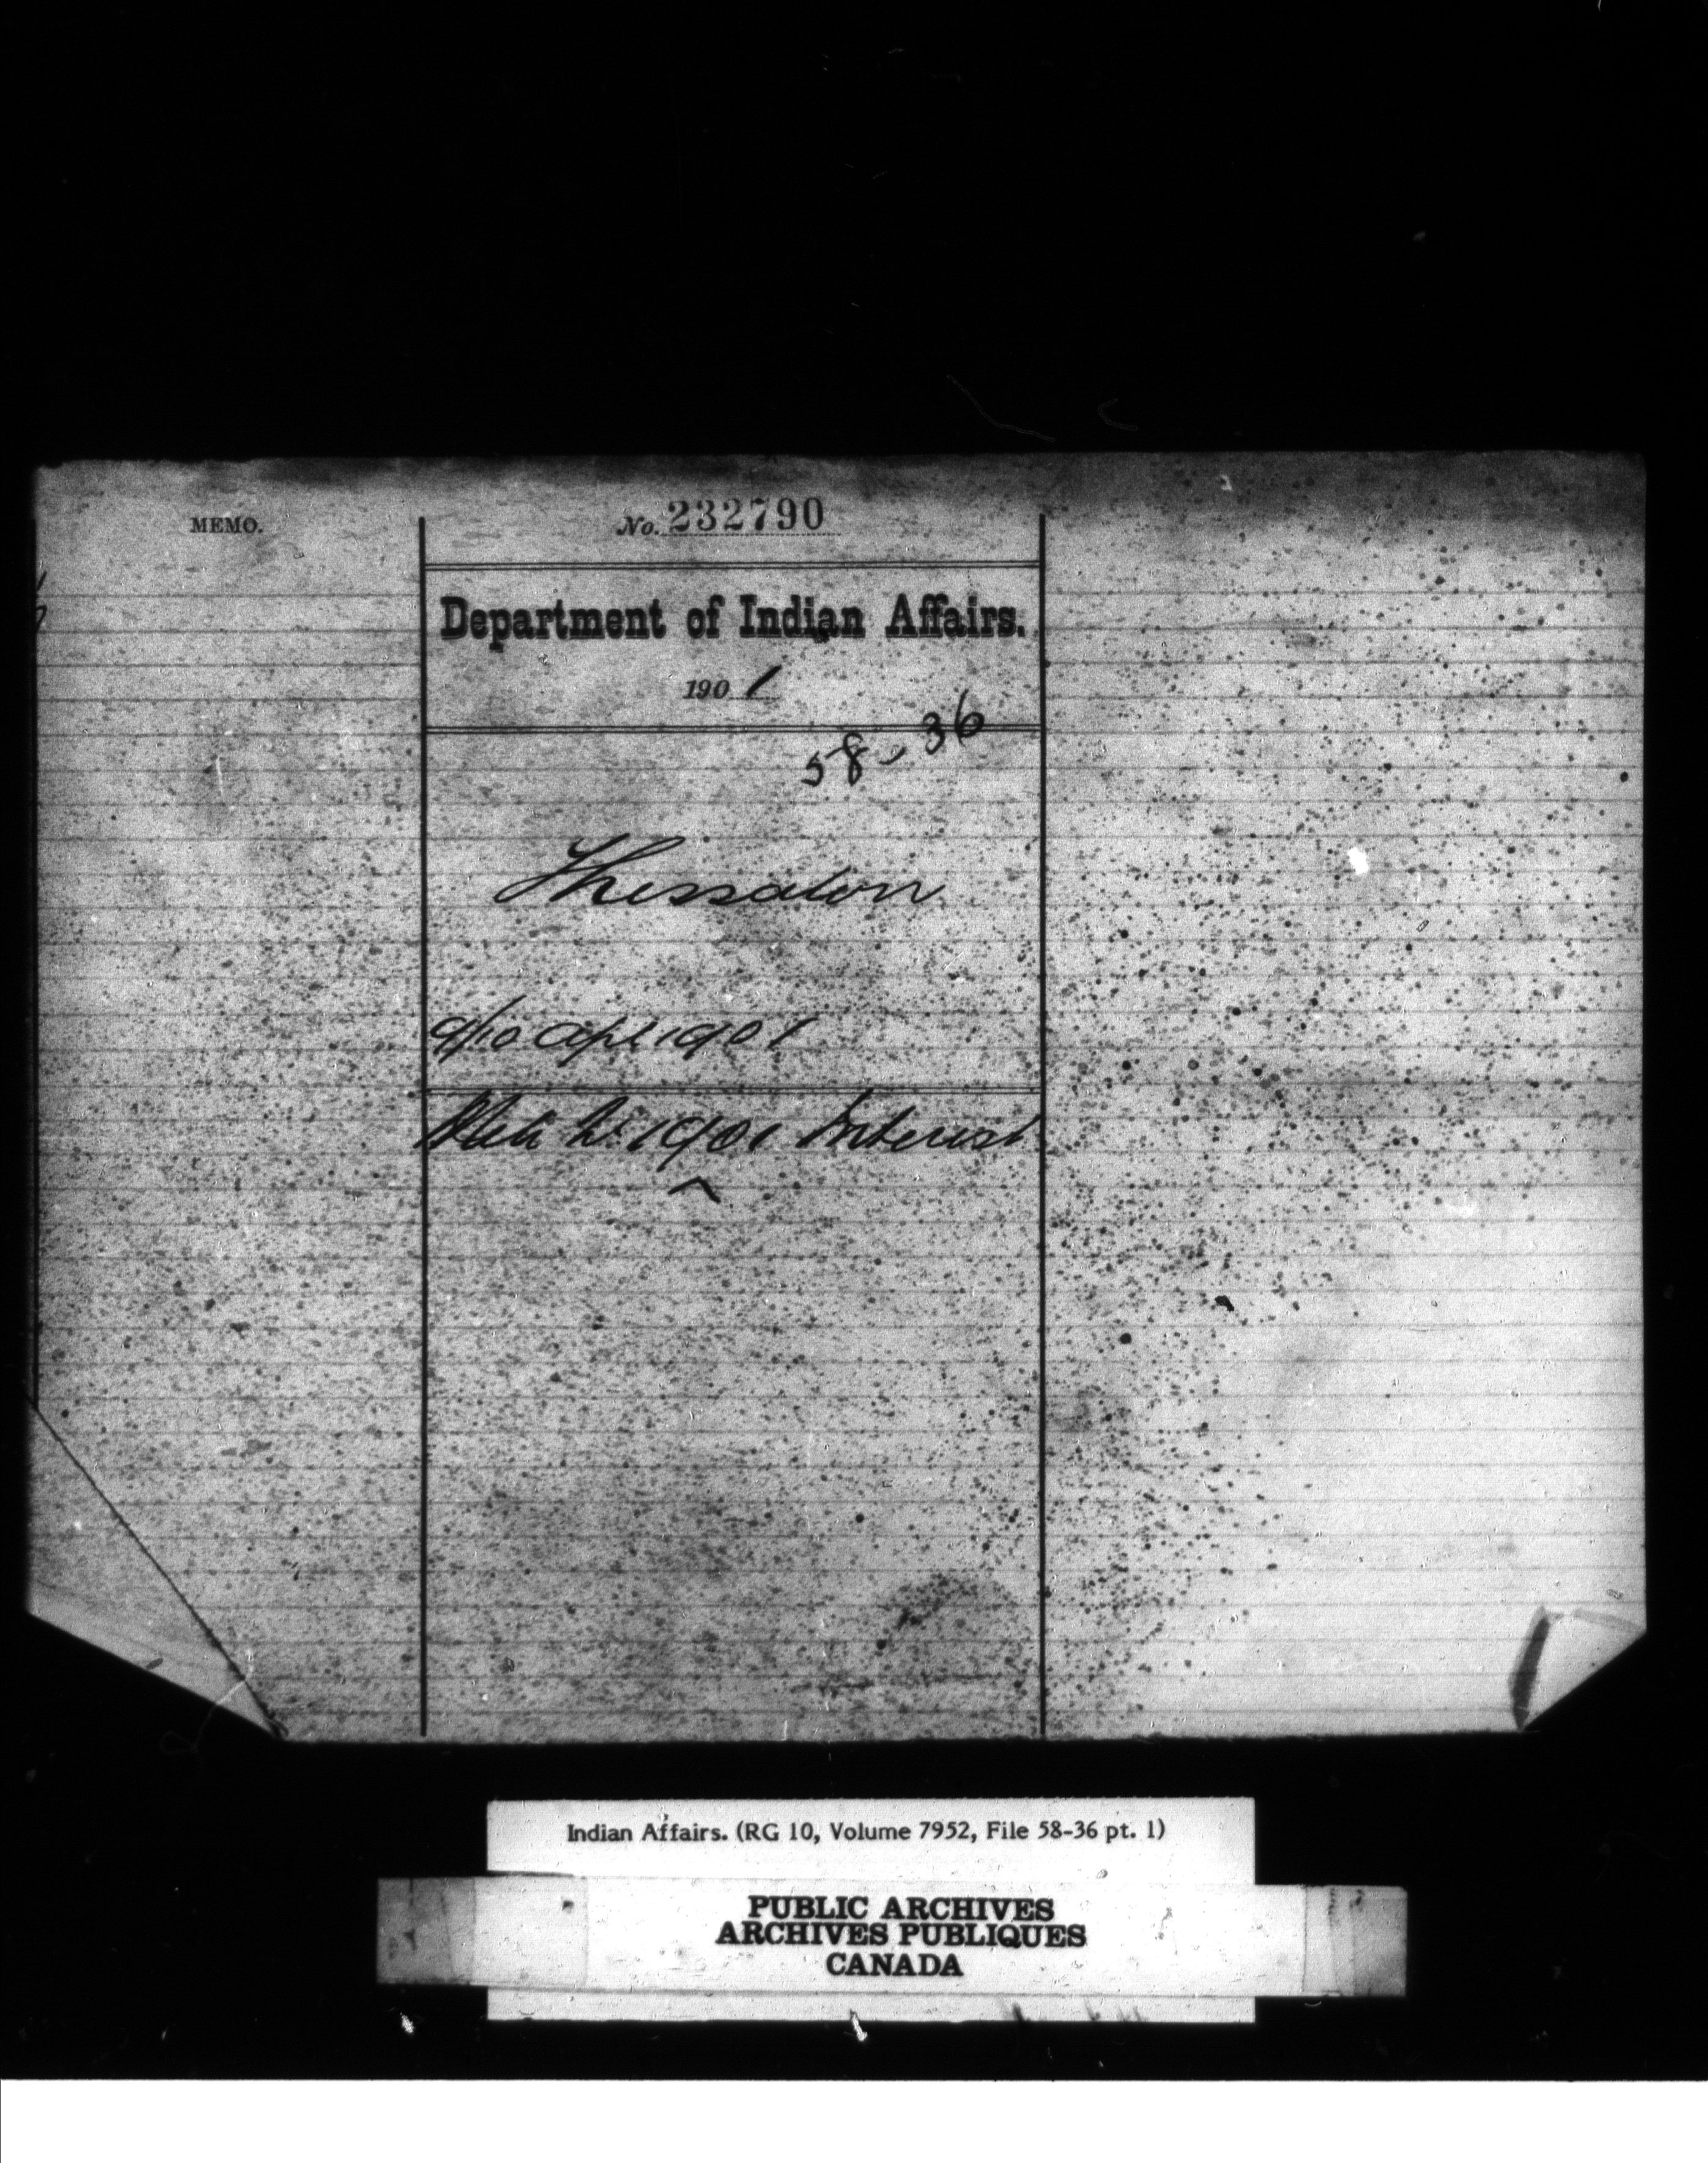 MEMO.
No. 232790
Department of Indian Affairs.
1901
58-36
Thessalon
1901
1901 Interest
Indian Affairs. (RG 10, Volume 7952, File 58-36 pt. 1)
PUBLIC ARCHIVES
ARCHIVES PUBLIQUES
CANADA